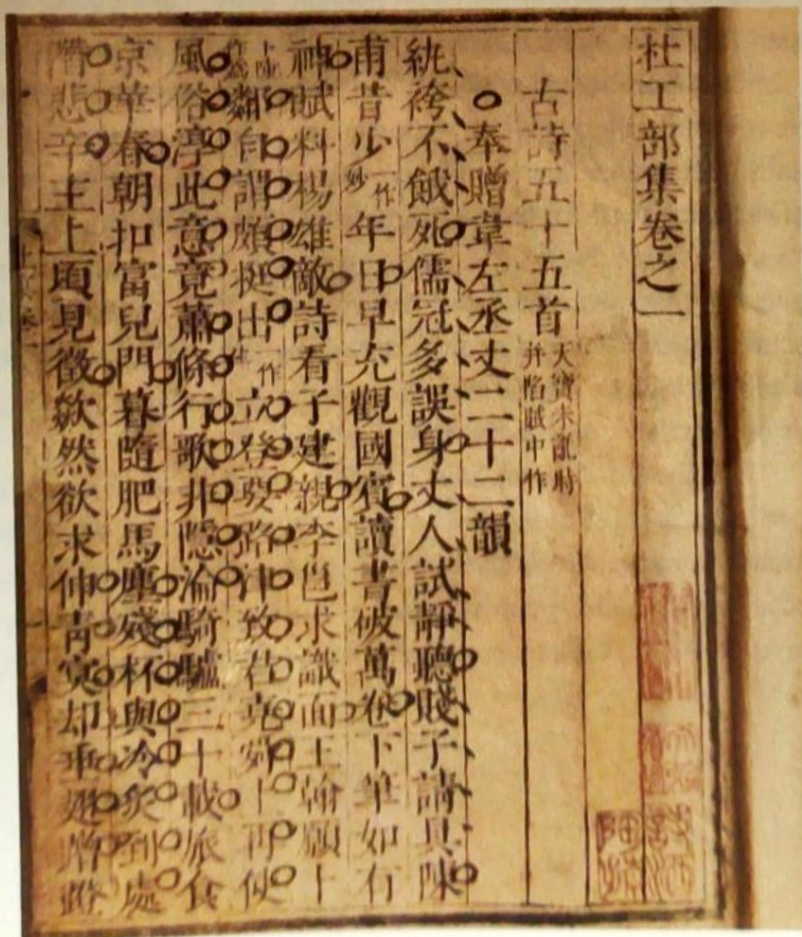 杜工部集卷之一
古詩五十五首天寶未亂時并陷賊中作
奉贈韋左丞丈二十二韻
紈袴不餓死儒冠多誤身丈人試靜聽賤子請具陳
甫昔少一作妙年日早充觀國賓讀書破萬卷下筆如有
神賦料楊雄敵詩看子建親李邕求識面王翰願卜
鄰自謂頗挺出一作立登要路津致君堯舜上再使
風俗淳此意竟蕭條行歌非隱淪騎驢三十載旅食
京華春朝扣富兒門暮隨肥馬塵殘杯與冷炙到處
潛悲辛主上頃見徵歘然欲求伸青冥却垂翅蹭蹬